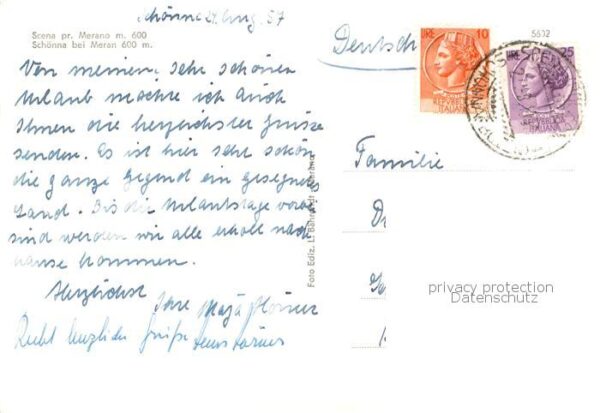 Schönna 21. Aug. 57
Scena pr. Merano m. 600
Schönna bei Meran 600 m.
Von meinem, sehr schönen
Urlaub möchte ich auch
Ihnen die herzlichster Grüsse
senden. Es ist hier sehr schön
die ganze Gegend ein gesegnetes
Land. Bis die Urlaubstage vorbei
sind werden wir alle erholt nach
hause kommen.
Herzlichst
Ihre
Recht herzliche Grüße
Foto Ediz. L. Bährendt Merano
Deutsch
LIRE 10
REPUBBLICA
ITALIANA
5602
LIRE 25
REPUBBLICA
ITALIANA
Familie
privacy protection
Datenschutz